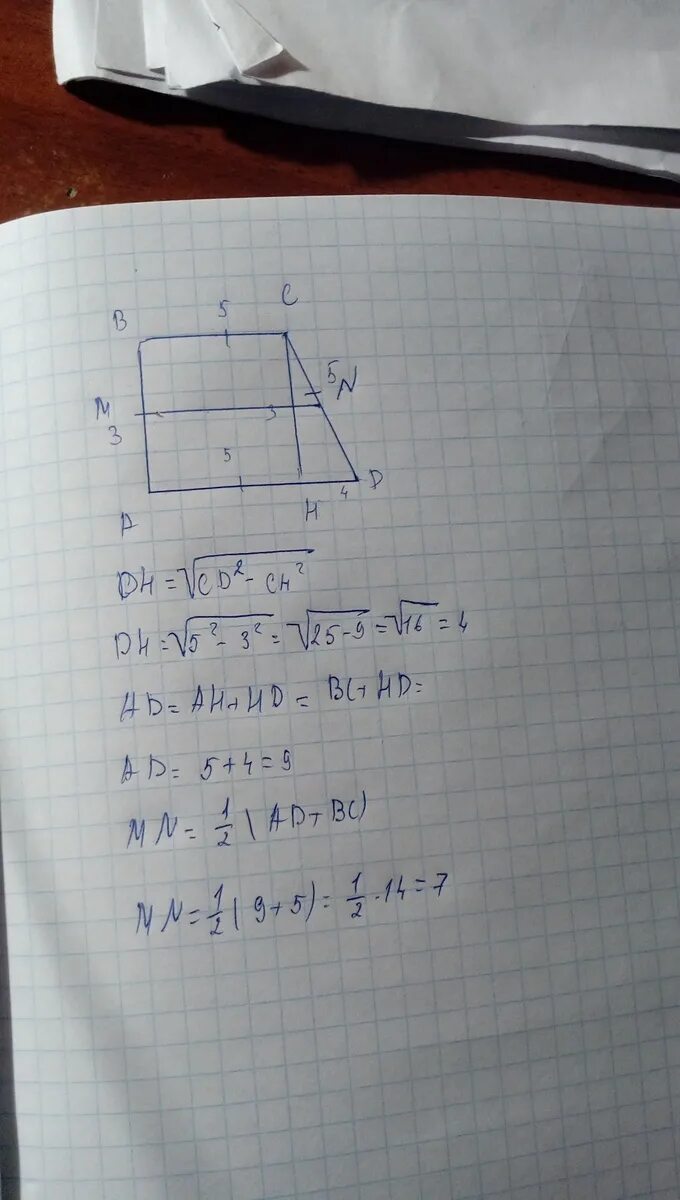 B 5 C
5 N
M 3
3
5
A H 4 D
DH = √(CD² - CH²)
DH = √(5² - 3²) = √(25-9) = √16 = 4
AD = AH + HD = BC + HD =
AD = 5 + 4 = 9
MN = 1/2 (AD + BC)
MN = 1/2 (9 + 5) = 1/2 · 14 = 7